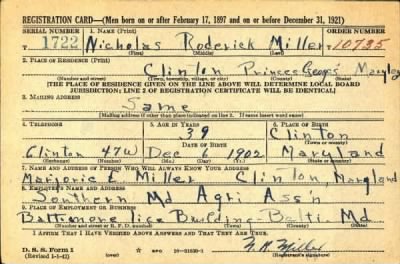 REGISTRATION CARD—(Men born on or after February 17, 1897 and on or before December 31, 1921)
SERIAL NUMBER 1. NAME (Print) ORDER NUMBER
T 1722 Nicholas Roderick Miller T 10735
(First) (Middle) (Last)
2. PLACE OF RESIDENCE (Print)
Clinton Prince Georges Maryland
(Number and street) (Town, township, village, or city) (County) (State)
[THE PLACE OF RESIDENCE GIVEN ON THE LINE ABOVE WILL DETERMINE LOCAL BOARD
JURISDICTION; LINE 2 OF REGISTRATION CERTIFICATE WILL BE IDENTICAL]
3. MAILING ADDRESS
Same
[Mailing address if other than place indicated on line 2. If same insert word same]
4. TELEPHONE 5. AGE IN YEARS 6. PLACE OF BIRTH
39 Clinton
DATE OF BIRTH (Town or county)
Clinton 47W Dec 6 1902 Maryland
(Exchange) (Number) (Mo.) (Day) (Yr.) (State or country)
7. NAME AND ADDRESS OF PERSON WHO WILL ALWAYS KNOW YOUR ADDRESS
Marjorie E. Miller Clinton, Maryland
8. EMPLOYER'S NAME AND ADDRESS
Southern Md Agri Ass'n
9. PLACE OF EMPLOYMENT OR BUSINESS
Baltimore Building Balti. Md
(Number and street or R. F. D. number) (Town) (County) (State)
I AFFIRM THAT I HAVE VERIFIED ABOVE ANSWERS AND THAT THEY ARE TRUE.
D. S. S. Form 1
(Revised 1-1-42) GPO 16-21630-1
N. R. Miller